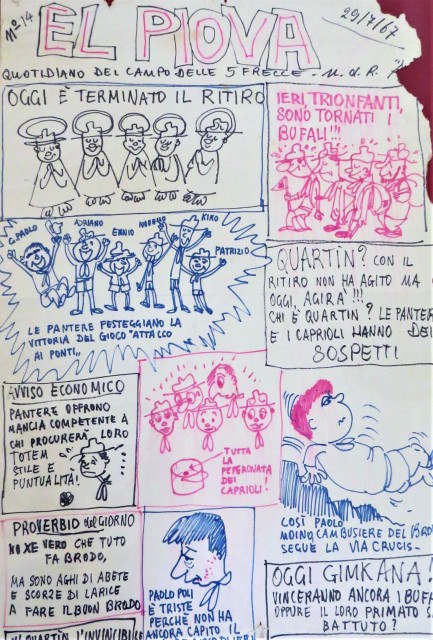 N° 14
EL PIOVA
29/7/67
QUOTIDIANO DEL CAMPO DELLE 5 FRECCE - N. d. R.
OGGI È TERMINATO IL RITIRO
IERI, TRIONFANTI,
SONO TORNATI I
BUFALI!!!
G. PAOLO
ADRIANO
ENNIO
KIKO
PATRIZIO
LE PANTERE FESTEGGIANO LA
VITTORIA DEL GIOCO "ATTACCO
AI PONTI"
QUARTIN? CON IL
RITIRO NON HA AGITO MA
OGGI, AGIRA'!!!
CHI È QUARTIN? LE PANTERE
E I CAPRIOLI HANNO DEI
SOSPETTI
AVVISO ECONOMICO
PANTERE OFFRONO
MANCIA COMPETENTE A
CHI PROCURERÀ LORO
TOTEM
STILE E
PUNTUALITÀ!
TUTTA
LA
PEPERONATA
DEI
CAPRIOLI!
COSÌ PAOLO
MOINO CAMBUSIERE DEL BRODO
SEGUE LA VIA CRUCIS -
PROVERBIO del GIORNO
NO XE VERO CHE TUTO
FA BRODO,
MA SONO AGHI DI ABETE
E SCORZE DI LARICE
A FARE IL BUON BRODO
PAOLO POLI
È TRISTE
PERCHÈ NON HA
ANCORA CAPITO IL
OGGI GIMKANA!
VINCERANNO ANCORA I BUFALI
OPPURE IL LORO PRIMATO SARÀ
BATTUTO?
QUARTIN L'INVINCIBILE